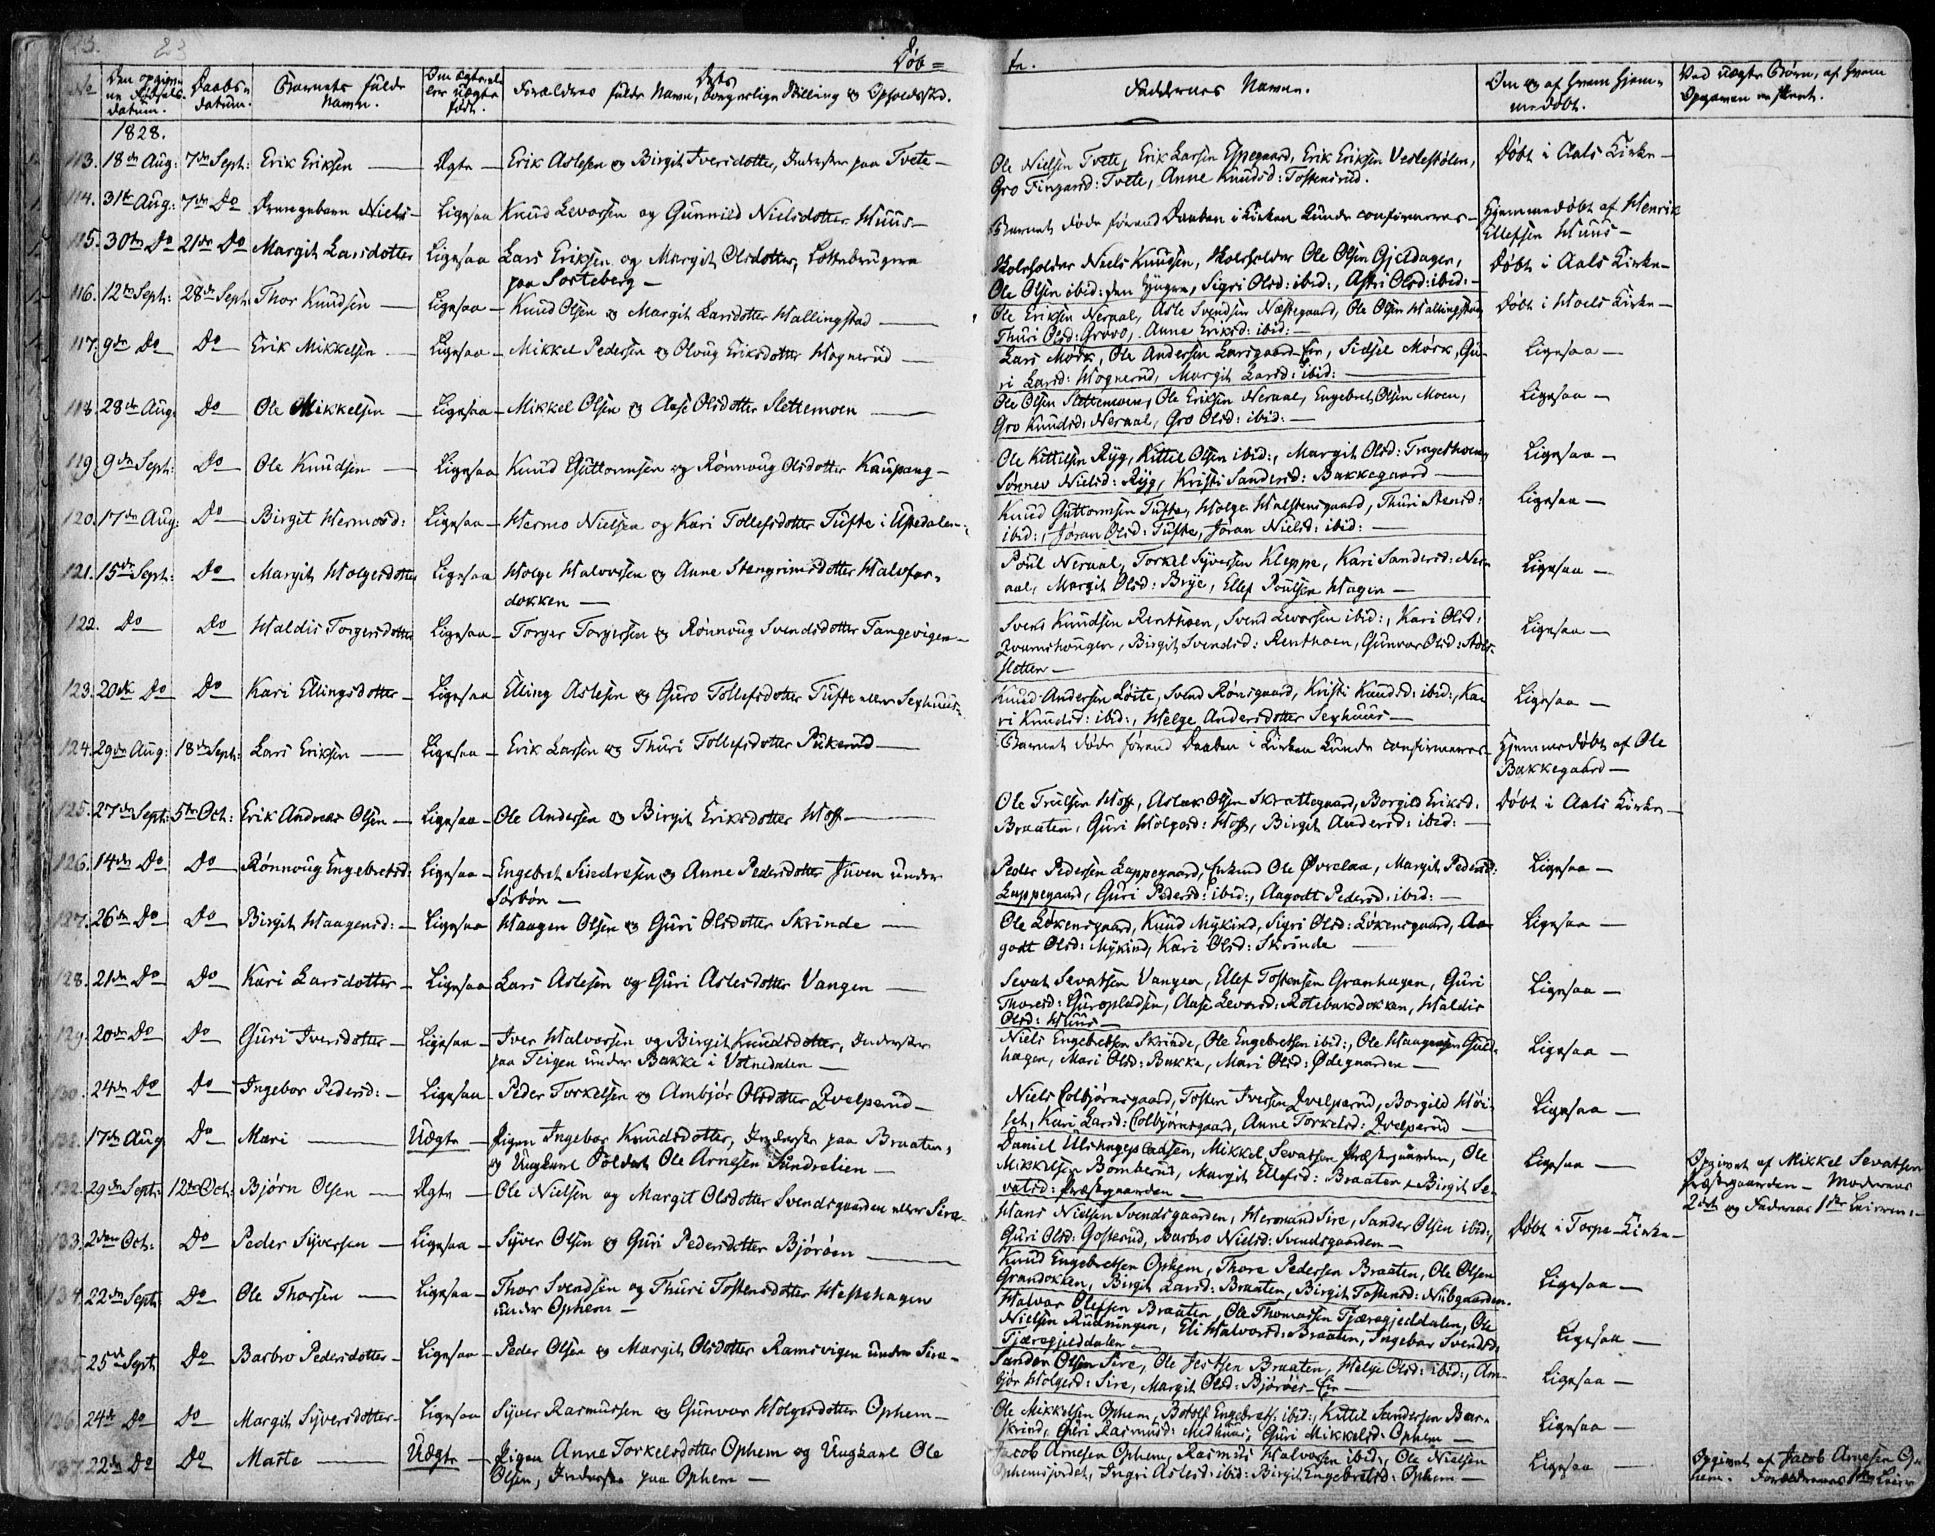 23.
Døb=
te.
No
Den opgiv-
ne Fødsels-
datum.
Daabs-
datum.
Barnets fulde
Navn.
Om ægte el-
ler uægte
født.
Forældres fulde Navn, borgerlige Stilling og Opholdssted.
Faddernes Navne.
Om og af hvem hjem-
medøbt.
Ved uægte Børn, af hvem
Opgaven er skeet.
1828.
113. 18de Aug: 7de Sept: Erik Eriksen — Ægte — Erik Aslesen og Birgit Iversdotter, Inderster paa Tvete —
Ole Nielsen Tvete, Erik Larsen Espegaard, Erik Eriksen Veslestølen,
Gro Fingarsd: Tvete, Anne Knudsd: Tostensrud.
Døbt i Aals Kirke —
114. 31te Aug: 7de Do Drengebarn Niels — Ligesaa Knud Levorsen og Gunnild Nielsdotter Huus —
Barnet døde førend Daaben i Kirken kunde confirmeres —
Hjemmedøbt af Henrik
Ellefsen Huus —
115. 30te Do 21de Do Margit Larsdotter Ligesaa Lars Eriksen og Margit Olsdotter,
paa Sorteberg —
Skoleholder Niels Knudsen, Skoleholder Ole Olsen Gjeldager,
Ole Olsen ibid: den Yngre, Sigri Olsd: ibid:, Astri Olsd: ibid: —
Døbt i Aals Kirke —
116. 12te Sept: 28de Sept: Thor Knudsen — Ligesaa — Knud Olsen og Margit Larsdotter Hallingstad —
Ole Eriksen Neraal, Asle Svendsen Næstegaard, Ole Olsen Hallingstad
Thuri Olsd: Grøvo, Anne Eriksd: ibid: —
Døbt i Hoels Kirke —
117. 9de Do Do Erik Mikkelsen — Ligesaa — Mikkel Pedersen og Oloug Eriksdotter Wognerud —
Lars Mørk, Ole Andersen Larsgaard Eie, Sidsel Mørk, Gu-
ri Larsd: Wognerud, Margit Larsd: ibid: —
Ligesaa —
118. 28de Aug: Do Ole Mikkelsen — Ligesaa — Mikkel Olsen og Aase Olsdotter Slettemoen —
Ole Olsen Slettemoen, Ole Eriksen Neraal, Engebret Olsen Moen,
Gro Knudsd: Neraal, Gro Olsd: ibid: —
Ligesaa —
119. 9de Sept: Do Ole Knudsen — Ligesaa Knud Guttormsen og Rønnoug Olsdotter Kaupang —
Ole Kittilsen Ryg, Kittil Olsen ibid:, Margit Olsd:
Sønnev Nielsd: Ryg, Kristi Sandersd: Bakkegaard —
Ligesaa —
120. 17de Aug: Do Birgit Hermosd: Ligesaa — Hermo Nielsen og Kari Tollefsdotter Tufte i Ustedalen —
Knud Guttormsen Tufte, Holge Halstensgaard, Thuri Stensd:
ibid:, Jøran Olsd: Tufte, Jøran Nielsd: ibid: —
Ligesaa —
121. 15de Sept: Do Margit Holgersdotter Ligesaa Holge Halvorsen og Anne Stengrimsdotter Halvfar-
dokken —
Poul Neraal, Torkel Syversen Kleppe, Kari Sandersd: Ner-
aal, Margit Olsd: Brye, Ellef Poulsen Hagen —
Ligesaa —
122. Do Do Haldis Torgersdotter Ligesaa — Torger Torgersen og Rønnoug Svendsdotter Tangevigen —
Svend Knudsen Renthoen, Svend Levorsen ibid:, Kari Olsd:
Qvamshougen, Birgit Svendsd: Renthoen, Gunvor Olsd:
sletten —
Ligesaa —
123. 20de Do Do Kari Ellingsdotter — Ligesaa Elling Aslesen og Guro Tollefsdotter Tufte eller Sexhuus —
Knud Andersen Løite, Svend Rønsgaard, Kristi Knudsd: ibid:, Ka-
ri Knudsd: ibid:, Helge Andersdotter Sexhuus —
Ligesaa —
124. 29de Aug: 18de Sept: Lars Eriksen — Ligesaa — Erik Larsen og Thuri Tollefsdotter Pukerud —
Barnet døde førend Daaben i Kirken kunde confirmeres —
Hjemmedøbt af Ole
Bakkegaard —
125. 27de Sept: 5te Oct: Erik Andreas Olsen — Ligesaa — Ole Andersen og Birgit Eriksdotter Hoff —
Ole Truelsen Hoff, Aslak Olsen Skrattegaard, Borgild Eriksd:
Braaten, Guri Holgesd: Hoff, Birgit Andersd: ibid: —
Døbt i Aals Kirke —
126. 14de Do Do Rønnoug Engebretsd: Ligesaa — Engebret Sevedresen og Anne Pedersdotter Juven under
Sørbøn —
Peder Pedersen Lappegaard, Erkend Ole Øvrelaa, Margit Pedersd:
Lappegaard, Guri Pedersd: ibid:, Aagodt Pedersd: ibid: —
Ligesaa —
127. 26de Do Do Birgit Haagensd: — Ligesaa Haagen Olsen og Guri Olsdotter Skrinde —
Ole Løkensgaard, Knud Mykind, Sigri Olsd: Løkensgaard, Aa-
godt Olsd: Mykind, Kari Olsd: Skrinde —
Ligesaa —
128. 21de Do Do Kari Larsdotter — Ligesaa Lars Aslesen og Guri Aslesdotter Vangen —
Sevat Sevatsen Vangen, Ellef Tostensen Granhagen, Guri
Thoresd: Guropladsen, Aase Levorsd: Rotebærdokken, Haldis
Olsd: Huus —
Ligesaa —
129. 20de Do Do Guri Iversdotter — Ligesaa — Iver Halvorsen og Birgit Knudsdotter, Inderster
paa Teigen under Bakke i Votnedalen —
Niels Engebretsen Skrinde, Ole Engebretsen ibid:, Ole Haagensen Guld-
hagen, Mari Olsd: Bakke, Mari Olsd: Ødegaarden —
Ligesaa —
130. 24de Do Do Ingebor Pedersd: — Ligesaa — Peder Torkelsen og Ambjør Olsdotter Qvelperud —
Niels Colbjørnsgaard, Tosten Iversen Qvelperud, Borgild Høi-
set, Kari Larsd: Colbjørnsgaard, Anne Torkelsd: Qvelperud —
Ligesaa —
131. 17de Aug Do Mari — Uægte — Pigen Ingebor Knudsdotter, Inderste paa Braaten,
og Ungkarl Soldat Ole Arnesen Sundrelien —
Daniel Ulshagepladsen, Mikkel Sevatsen Præstegaarden, Ole
Mikkelsen Bomberud, Margit Ellefsd: Braaten, Birgit Se-
vatsd: Præstegaarden —
Ligesaa —
Opgivet af Mikkel Sevatsen
Præstegaarden — Moderens
2det og Faderens 1ste Leiermaal —
132. 29de Sept: 12te Oct: Bjørn Olsen — Ægte — Ole Nielsen og Margit Olsdotter Svendsgaarden eller Sire —
Hans Nielsen Svendsgaarden, Hermand Sire, Sander Olsen ibid:,
Guri Olsd: Gosterud, Barbro Nielsd: Svendsgaarden —
Døbt i Torpe Kirke —
133. 2den Oct: Do Peder Syversen — Ligesaa — Syver Olsen og Guri Pedersdotter Bjørøen —
Knud Engebretsen Ophem, Thore Pedersen Braaten, Ole Olsen
Grandokken, Birgit Larsd: Braaten, Birgit Tostensd: Nubgaarden.
Ligesaa —
134. 22de Sept: Do Ole Thorsen — Ligesaa — Thor Svendsen og Thuri Tostensdotter Hestehagen
under Ophem —
Halvor Olefsen Braaten, Ole Thomassen Tjæregjeldalen, Ole
Nielsen Rudningen, Eli Halvorsd: Braaten, Ingebor Svendsd:
Tjæregjelddalen —
Ligesaa —
135. 25de Sept: Do Barbro Pedersdotter — Ligesaa — Peder Olsen og Margit Olsdotter Ramsvigen under Sire —
Sander Olsen Sire, Ole Jertsen Braaten, Helge Olsd: ibid:, Am-
bjør Holgersd: Sire, Margit Olsd: Bjørøes Eie —
Ligesaa —
136. 24de Do Do Margit Syversdotter — Ligesaa Syver Rasmussen og Gunvor Holgersdotter Ophem —
Ole Mikkelsen Ophem, Botolf Engebrets: ibid:, Kittil Sandersen Bær-
skrind, Guri Rasmusd: Medhuus, Guri Mikkelsd: Ophem —
Ligesaa —
137. 22de Do Do Marte — Uægte — Pigen Anne Torkelsdotter Ophem og Ungkarl Ole
Olsen, Inderster paa Ophem —
Jacob Arnesen Ophem, Rasmus Halvorsen ibid:, Ole Nielsen
Ophemsjordet, Ingri Aslesd: ibid: Birgit Engebretsd: Ophem —
Ligesaa —
Opgivet af Jacob Arnesen Op-
hem. Forældrenes 1ste Leierm